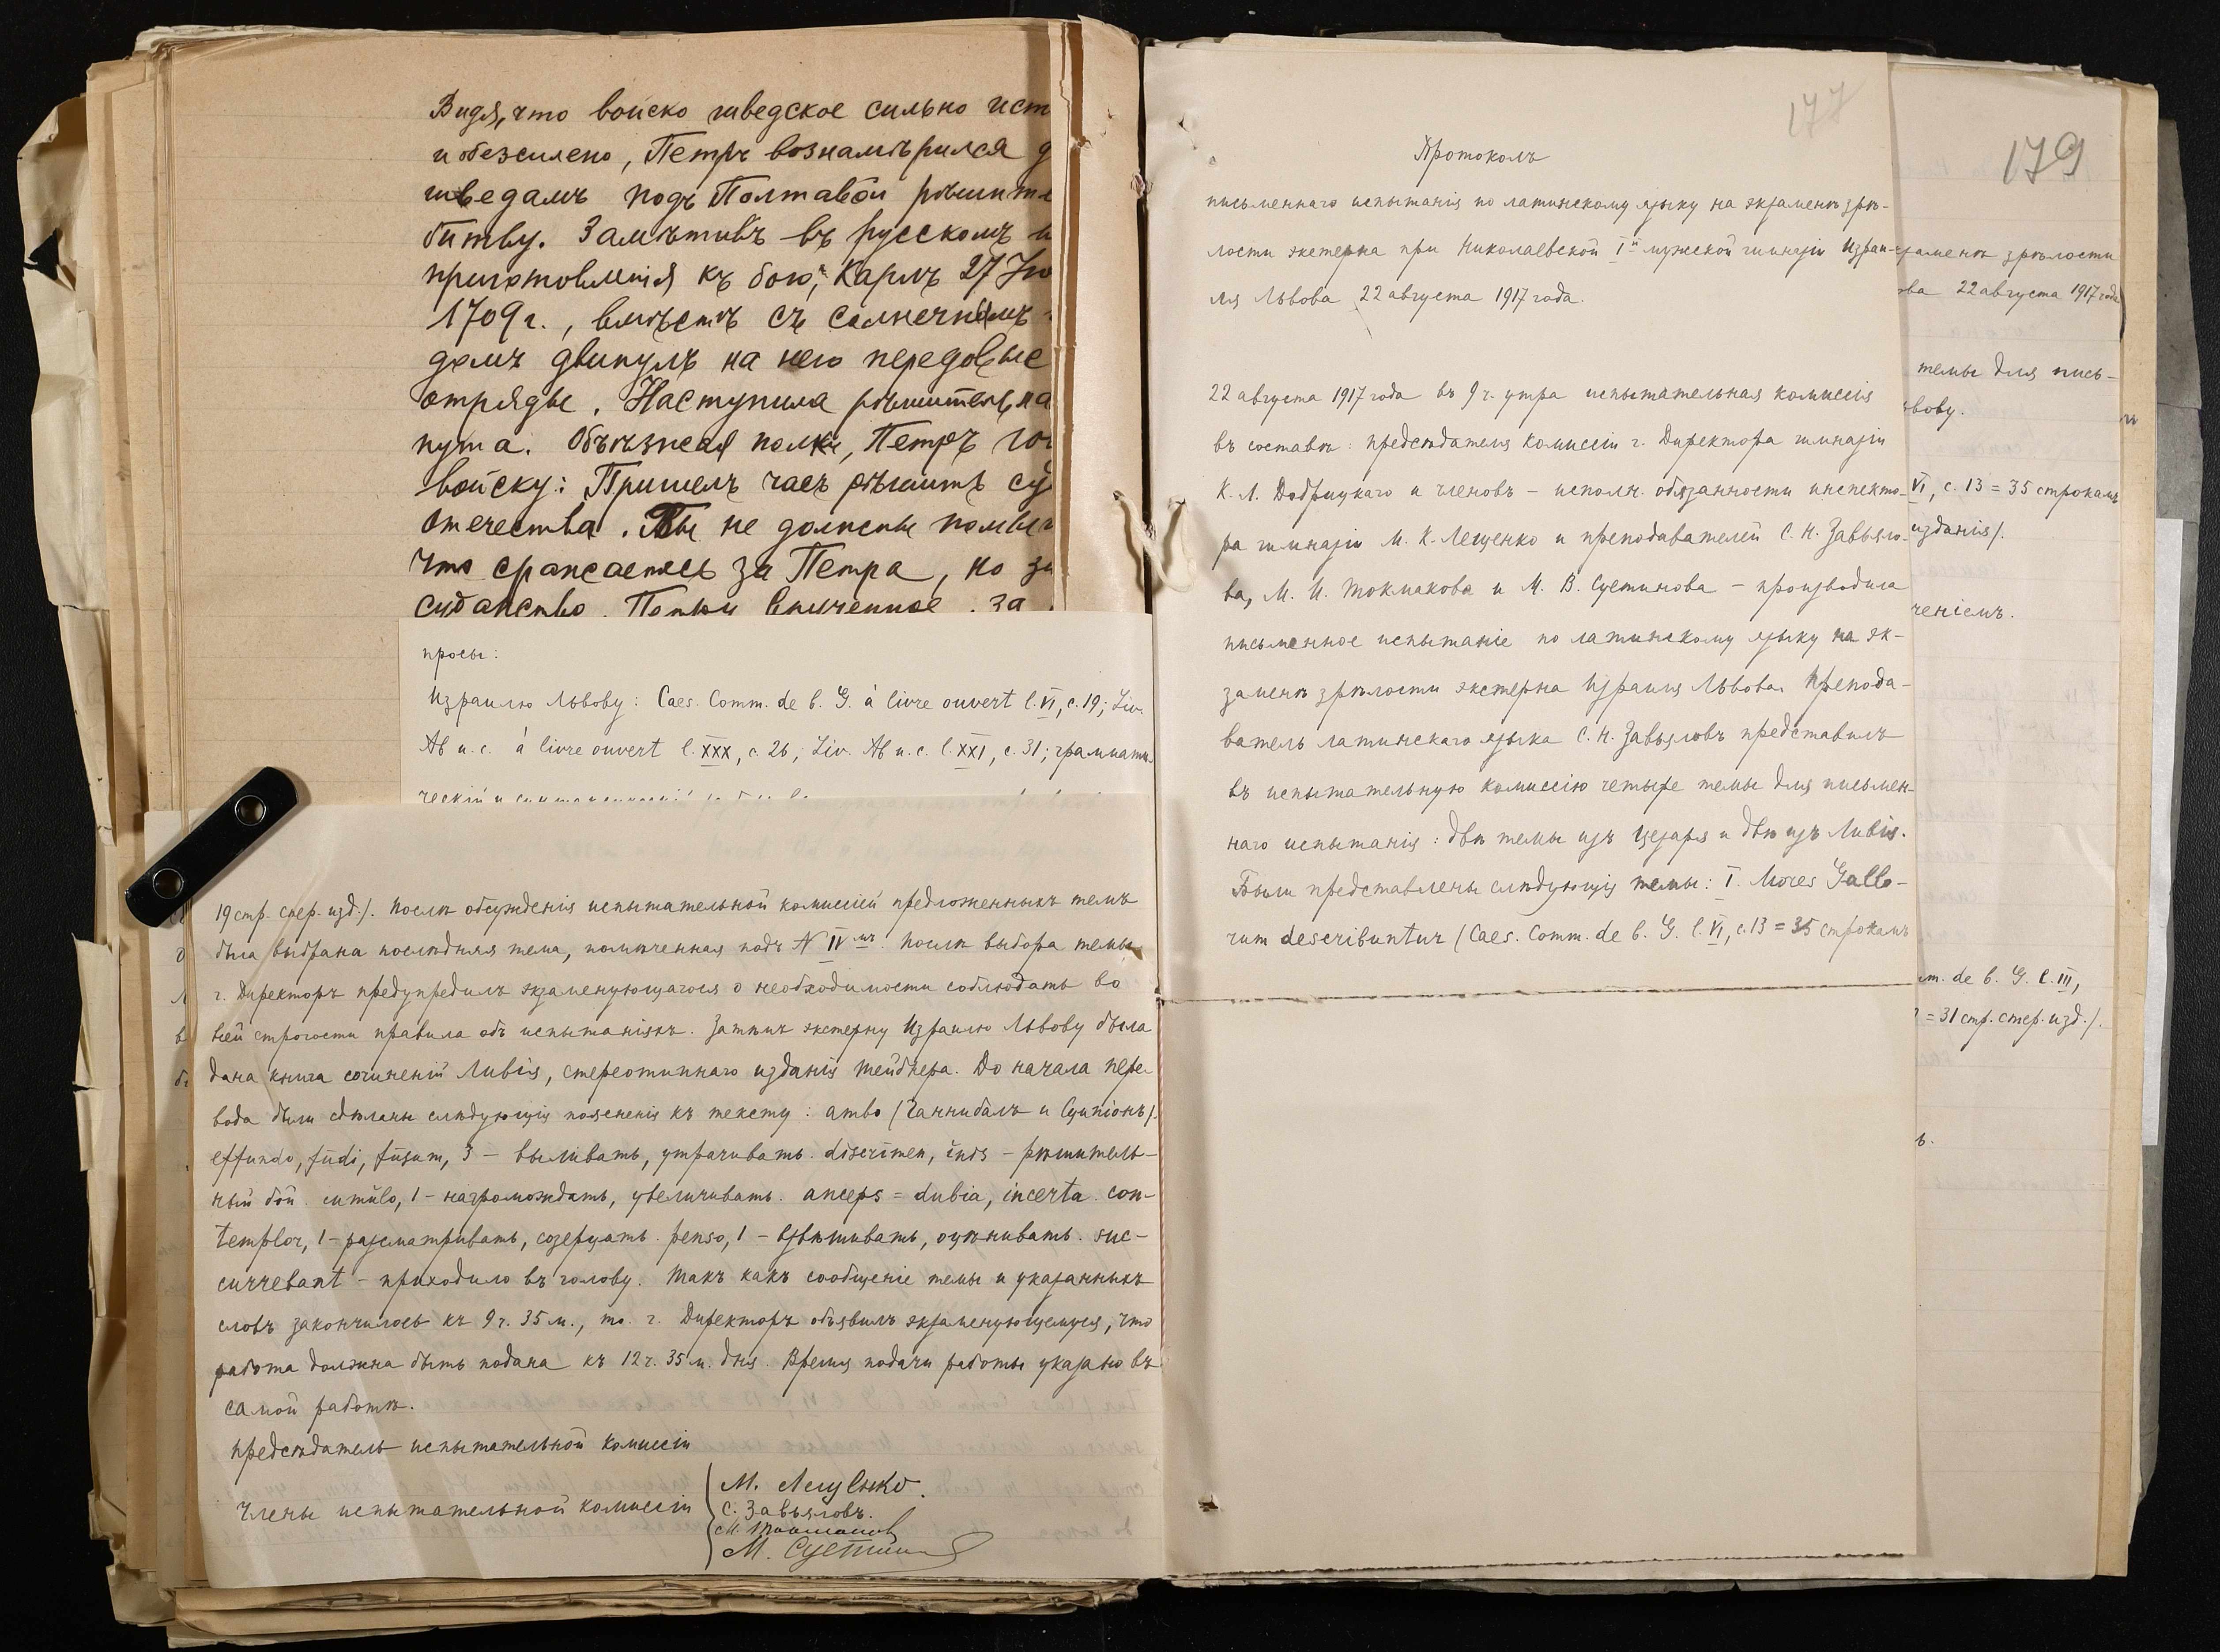 Видя, что войско шведское сильно ист
и обезсилено, Петръ вознамѣрился д
шведамъ подъ Полтавой рѣшите
битву. Замѣтивъ въ русскомъ
приготовленія къ бою, Карлъ 27 Iю
1709 г., вмѣстѣ съ солнечнымъ
домъ двинулъ на него передовые
отряды. Наступила рѣшительна
нута. Объѣзжая полки, Петръ гов
войску: Пришелъ часъ рѣшить суд
отечества. Вы не должны помыш
что сражаетесь за Петра, но за
сударство, Петру врученное, за
просы:
Израилю Львову: Caes. Comm. de b. G. à livre ouvert l. VI, c. 19; Liv.
Ab u. c. à livre ouvert l. XXX, c. 26; Liv. Ab u. c. l. XXI, c. 31; граммати-
ческій и
19 стр. стер. изд.). Послѣ обсужденія испытательной комиссіей предложенныхъ темъ
была выбрана послѣдняя тема, помѣченная подъ N IVмъ. Послѣ выбора темы
г. Директоръ предупредилъ экзаменующагося о необходимости соблюдать во
всей строгости правила объ испытаніяхъ. Затѣмъ экстерну Израилю Львову была
дана книга сочиненій Ливія, стереотипнаго изданія Тейбнера. До начала пере-
вода были сдѣланы слѣдующія поясненія къ тексту: ambo (Ганнибалъ и Сципіонъ).
effundo, fūdi, fūsum, 3 – выливать, утрачивать. discrīmen, ĭnis – рѣшитель-
ный бой. cumŭlo, 1 – нагромождать, увеличивать. anceps = dubia, incerta. con-
templor, 1 – разсматривать, созерцать. penso, 1 – взвѣшивать, оцѣнивать. suc-
currebant – приходило въ голову. Такъ какъ сообщеніе темы и указанныхъ
словъ закончилось къ 9 ч. 35 м., то г. Директоръ объявилъ экзаменующемуся, что
работа должна быть подана къ 12 ч. 35 м. дня. Время подачи работы указано въ
самой работѣ.
Предсѣдатель испытательной комиссіи
Члены испытательной комиссіи
М. Лещенко.
С. Завьяловъ.
М. Токмаковъ
М. Сустинов
177
Протоколъ
письменнаго испытанія по латинскому языку на экзаменѣ зрѣ-
лости экстерна при Николаевской Iй мужской гимназіи Израи-
ля Львова 22 августа 1917 года.
22 августа 1917 года въ 9 ч. утра испытательная комиссія
въ составѣ: предсѣдателя комиссіи г. Директора гимназіи
К. Л. Добрицкаго и членовъ – исполн. обязанности инспекто-
ра гимназіи М. К. Лещенко и преподавателей С. Н. Завьяло-
ва, М. И. Токмакова и М. В. Сустинова – производила
письменное испытаніе по латинскому языку на эк-
заменѣ зрѣлости экстерна Израиля Львова. Препода-
ватель латинскаго языка С. Н. Завьяловъ представилъ
въ испытательную комиссію четыре темы для письмен-
наго испытанія: двѣ темы изъ Цезаря и двѣ изъ Ливія.
Были представлены слѣдующія темы: I. Mores Gallo-
rum describuntur (Caes. Comm. de b. G. l. VI, c. 13 = 35 строкамъ
179
заменѣ зрѣлости
ова 22 августа 1917 года
темы для пись-
ьвову.
VI, c. 13 = 35 строкамъ
изданія).
ченіемъ.
m. de b. G. l. III,
= 31 стр. стер. изд.).
ъ.